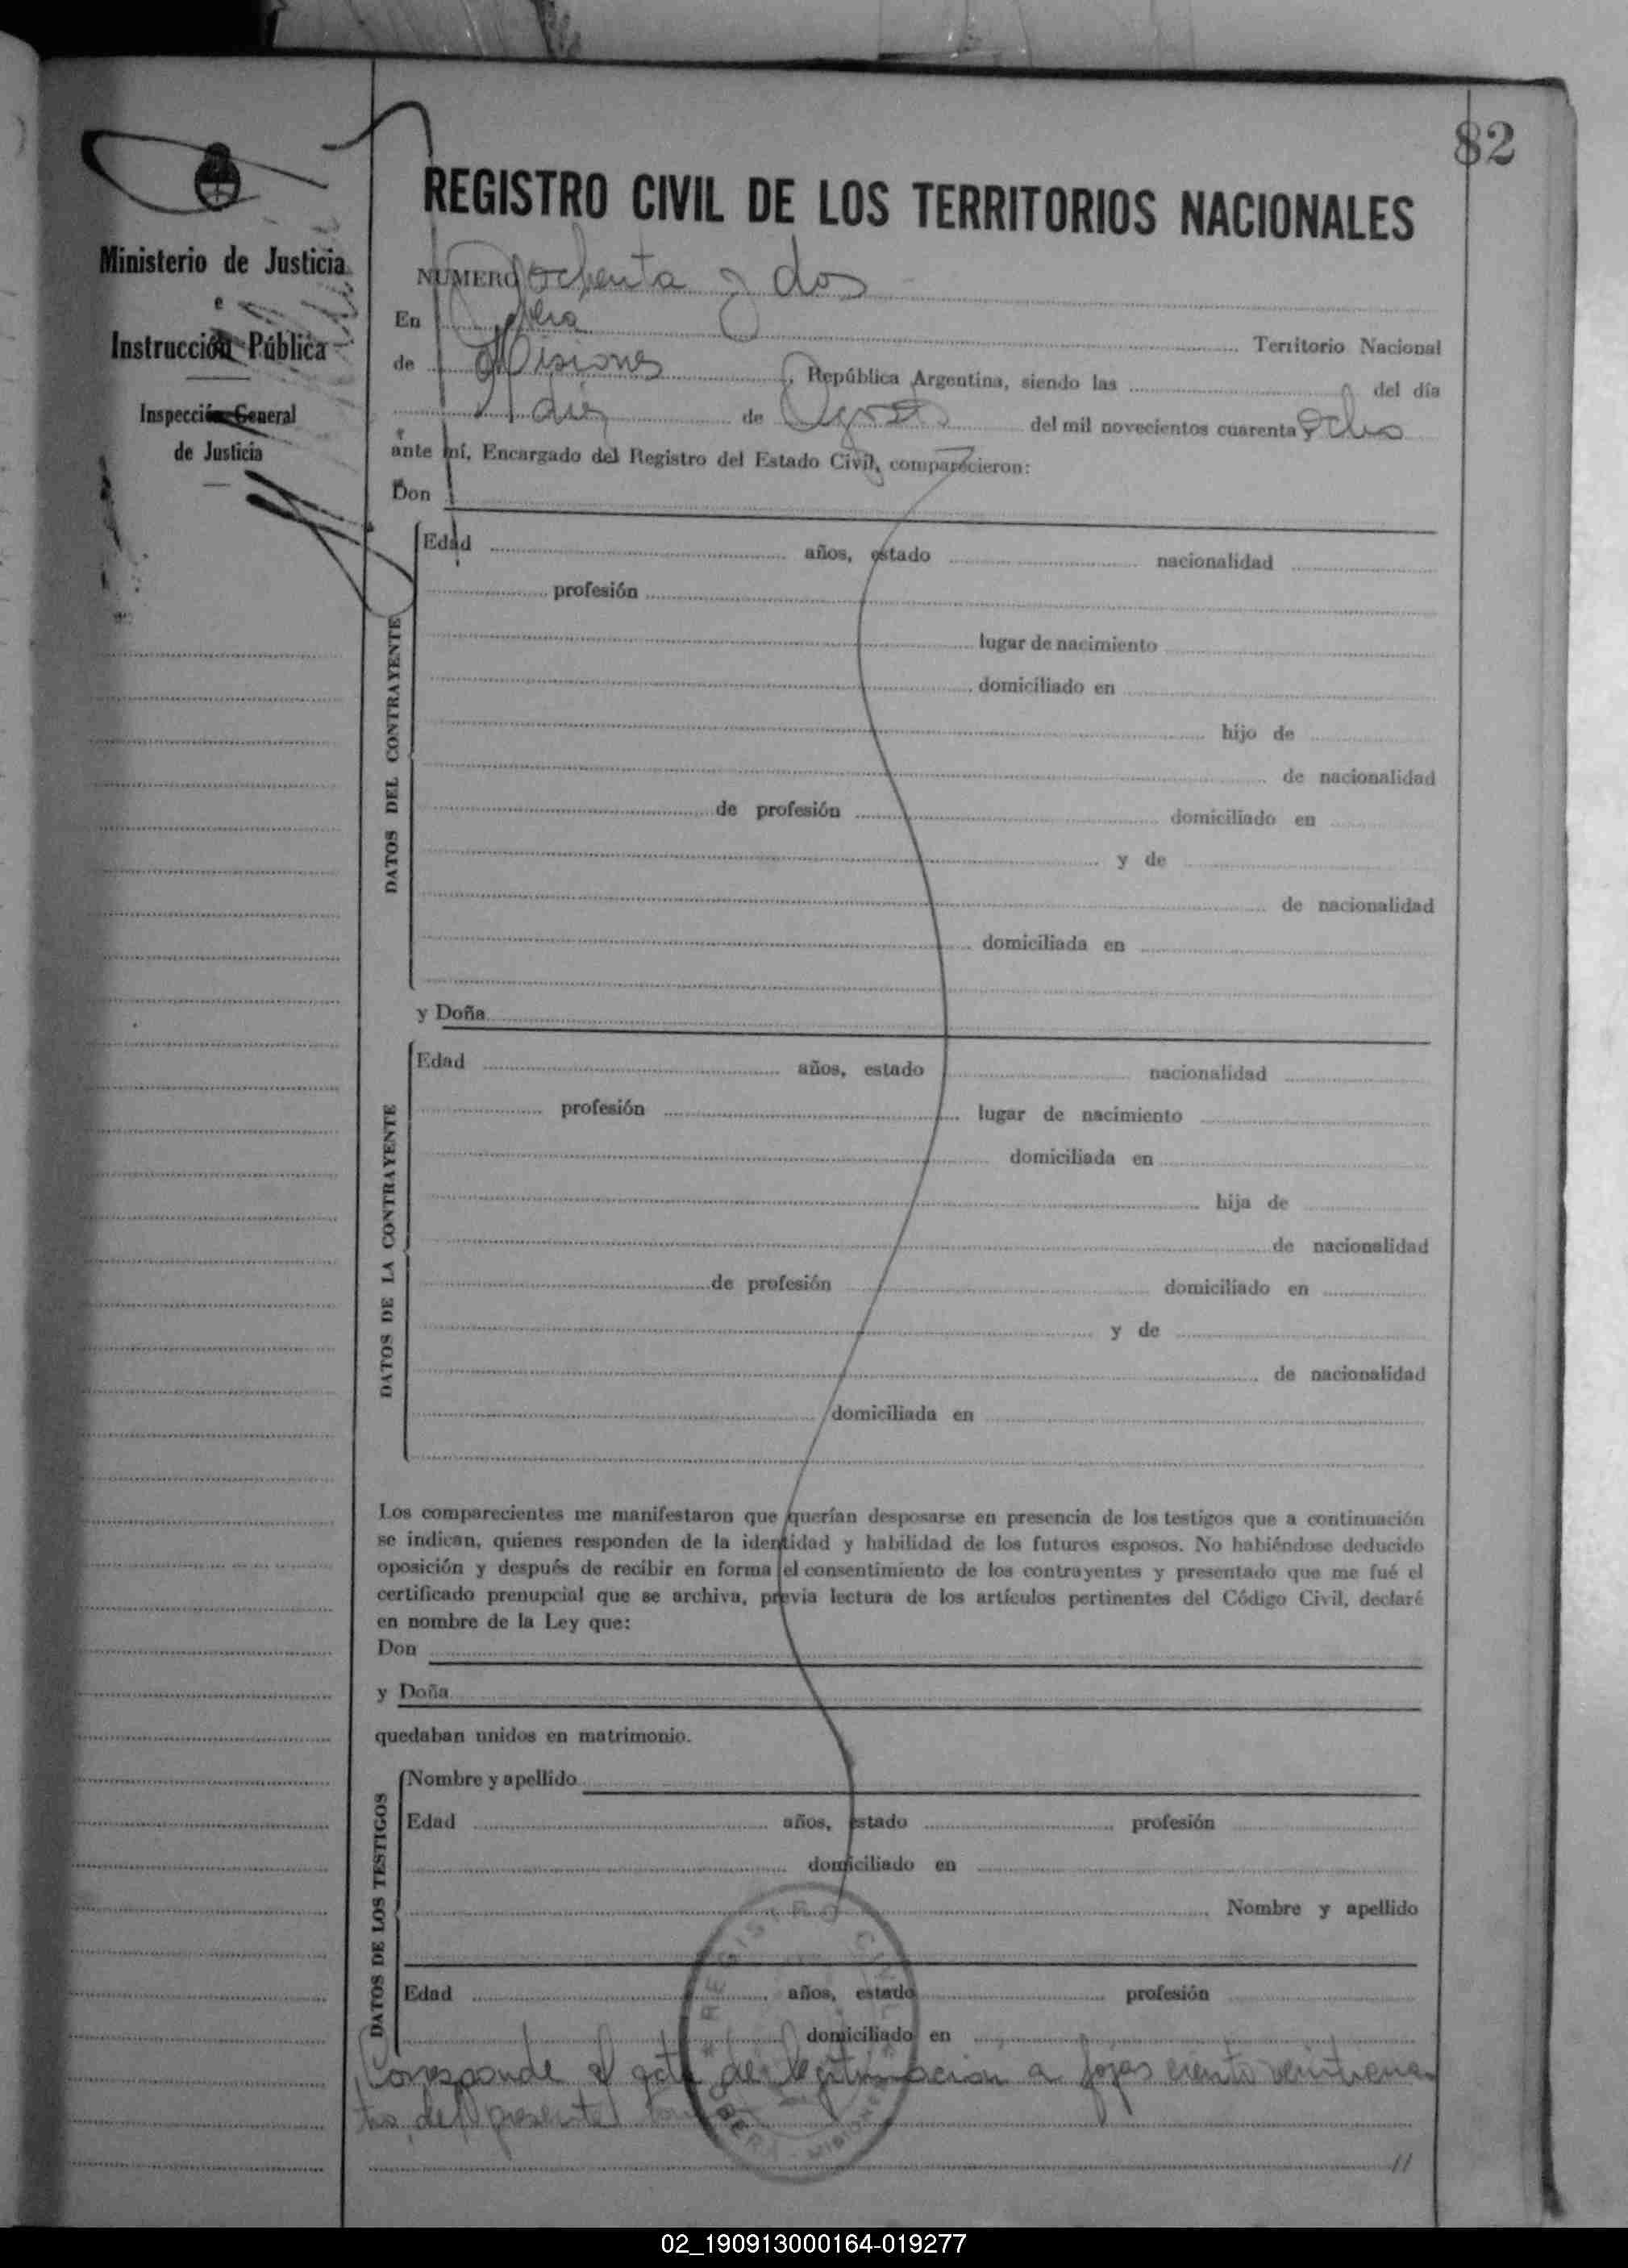 82
Ministerio de Justicia
e
Instrucción Pública
Inspección General
de Justicia
REGISTRO CIVIL DE LOS TERRITORIOS NACIONALES
NUMERO ochenta y dos
En Obera Territorio Nacional
de Misiones, República Argentina, siendo las del día
diez de Agosto del mil novecientos cuarenta y ocho
ante mí, Encargado del Registro del Estado Civil, comparecieron:
Don
DATOS DEL CONTRAYENTE
Edad años, estado nacionalidad
profesión
lugar de nacimiento
domiciliado en
hijo de
de nacionalidad
de profesión domiciliado en
y de
de nacionalidad
domiciliada en
y Doña
DATOS DE LA CONTRAYENTE
Edad años, estado nacionalidad
profesión lugar de nacimiento
domiciliada en
hija de
de nacionalidad
de profesión domiciliado en
y de
de nacionalidad
domiciliada en
Los comparecientes me manifestaron que querían desposarse en presencia de los testigos que a continuación
se indican, quienes responden de la identidad y habilidad de los futuros esposos. No habiéndose deducido
oposición y después de recibir en forma el consentimiento de los contrayentes y presentado que me fué el
certificado prenupcial que se archiva, previa lectura de los artículos pertinentes del Código Civil, declaré
en nombre de la Ley que:
Don
y Doña
quedaban unidos en matrimonio.
DATOS DE LOS TESTIGOS
Nombre y apellido
Edad años, estado profesión
domiciliado en
Nombre y apellido
Edad años, estado profesión
domiciliado en
REGISTRO CIVIL
OBERA - MISIONES
Corresponde al acta de legitimacion a fojas ciento
del presente
//
02_190913000164-019277